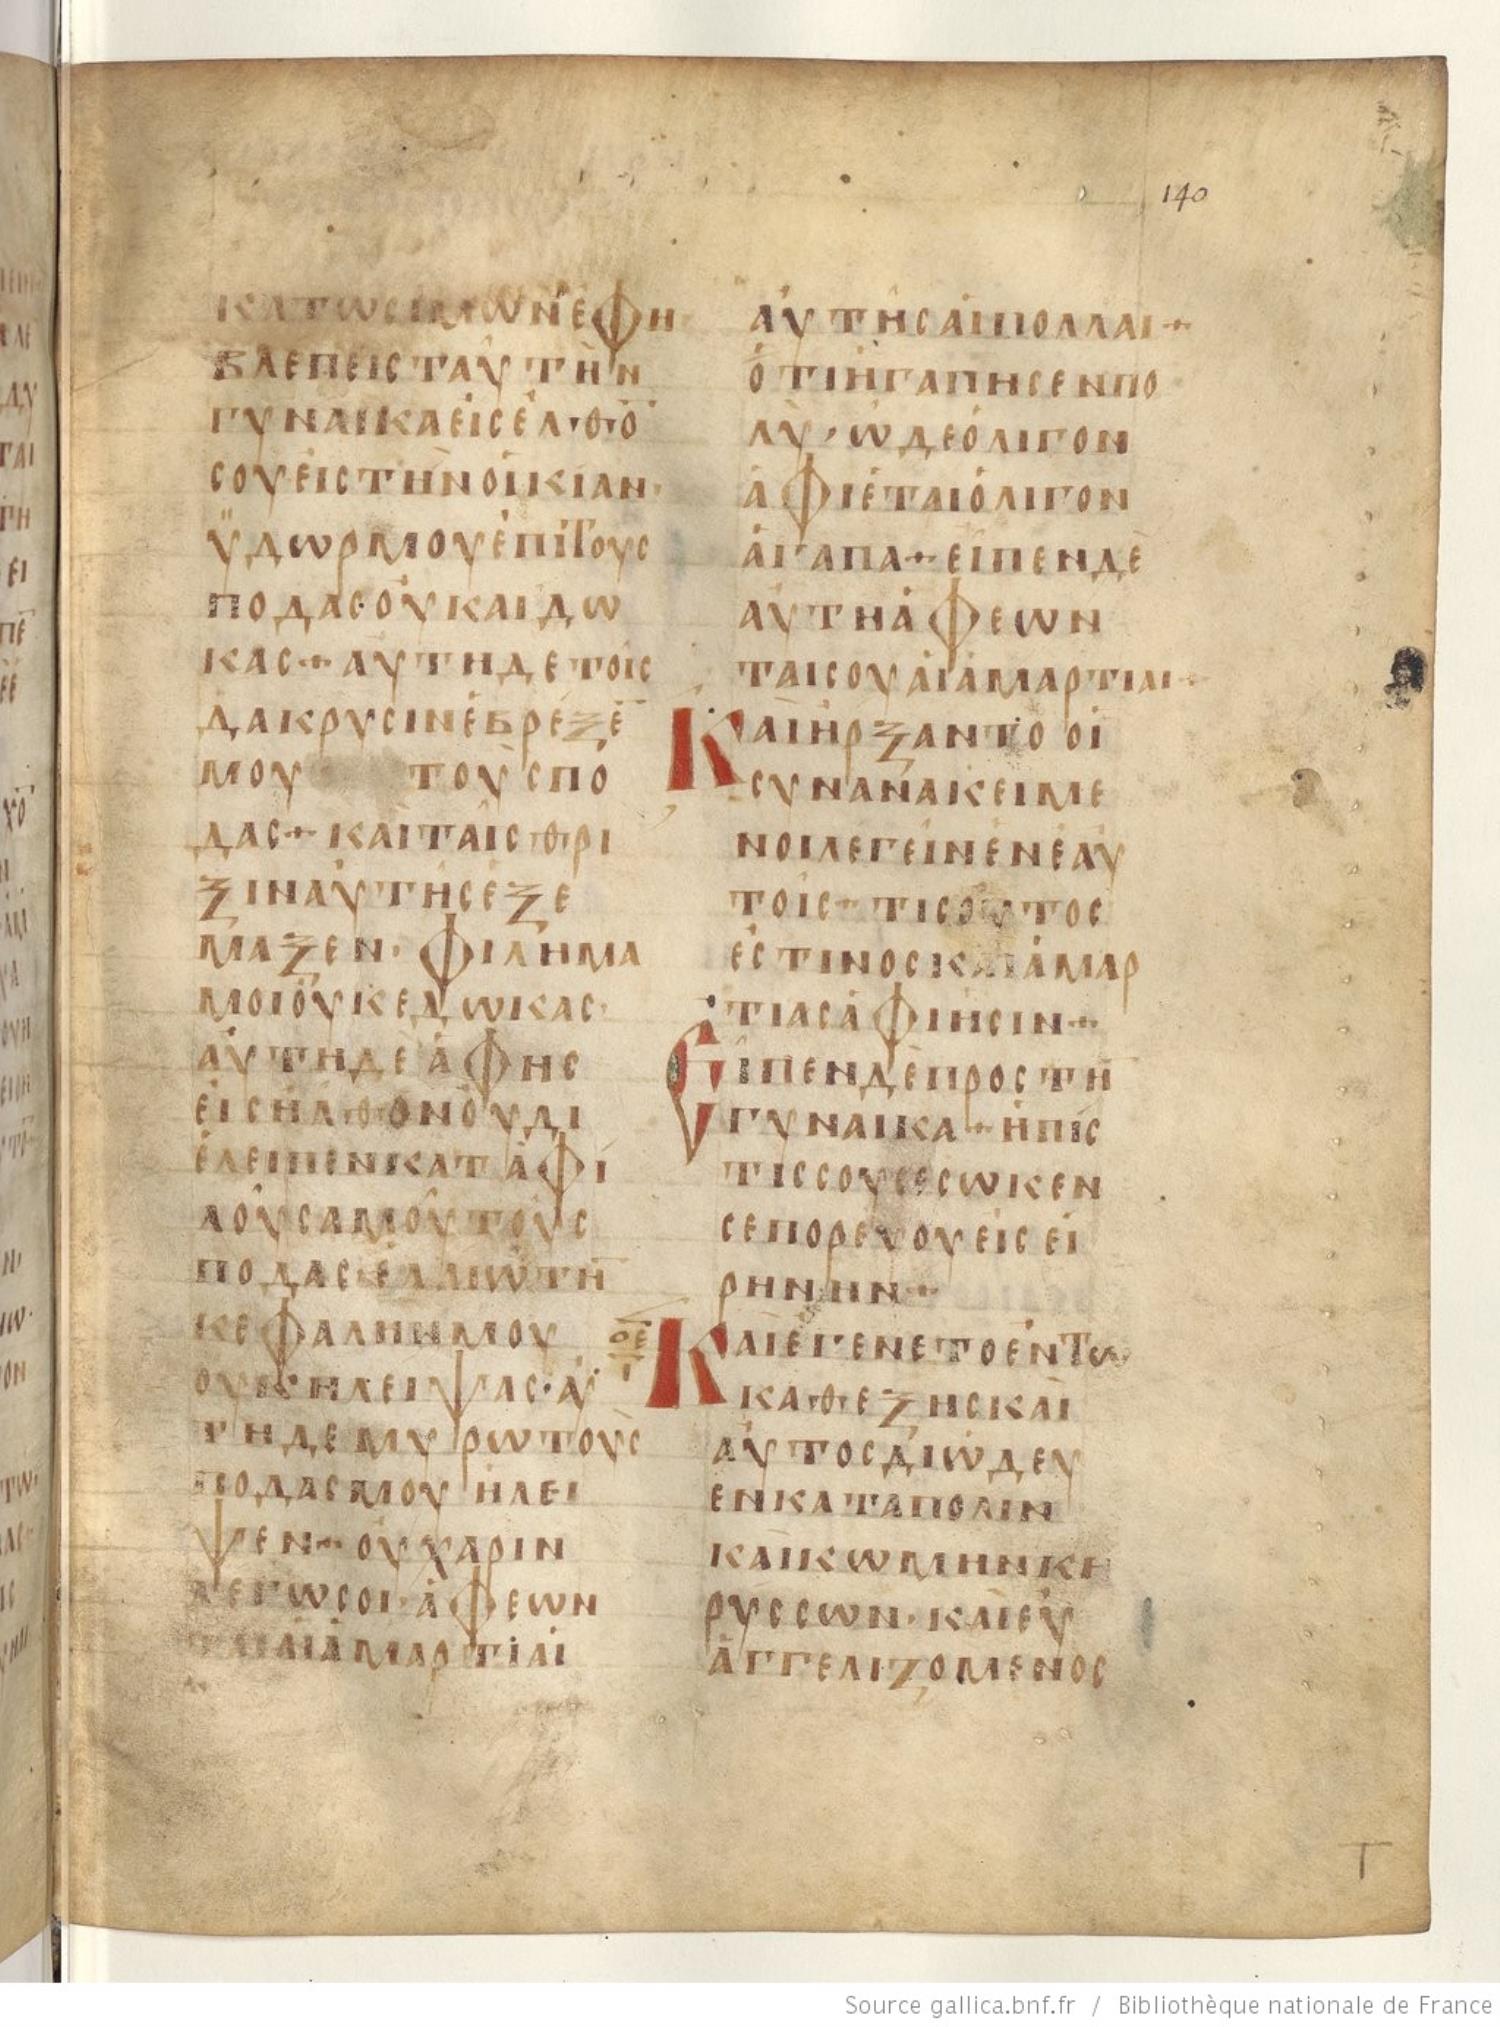 140
ΚΑΤΩΣΙΜΩΝΕΦΗ
ΒΛΕΠΕΙΣΤΑΥΤΗΝ
ΓΥΝΑΙΚΑΕΙΣΕΛΘΟ̅
ΣΟΥΕΙΣΤΗΝΟΙΚΙΑΝ·
ΫΔΩΡΜΟΥΕΠΙΤΟΥΣ
ΠΟΔΑΣΟΥΚΑΙΔΩ
ΚΑΣ+ΑΥΤΗΔΕΤΟΙΣ
ΔΑΚΡΥΣΙΝΕΒΡΕΞΕ̅
ΜΟΥ ΤΟΥΣΠΟ
ΔΑΣ+ΚΑΙΤΑΙΣΘΡΙ
ΞΙΝΑΥΤΗΣΕΞΕ
ΜΑΞΕΝ·ΦΙΛΗΜΑ
ΜΟΙΟΥΚΕΔΩΚΑΣ·
ΑΥΤΗΔΕΑΦΗΣ
ΕΙΣΗΛΘΟΝΟΥΔΙ
ΕΛΕΙΠΕΝΚΑΤΑΦΙ
ΛΟΥΣΑΜΟΥΤΟΥΣ
ΠΟΔΑΣ·ΕΛΑΙΩΤΗ̅
ΚΕΦΑΛΗΝΜΟΥ
ΟΥΚΗΛΕΙΨΑΣ·ΑΥ
ΤΗΔΕΜΥΡΩΤΟΥΣ
ΠΟΔΑΣΜΟΥΗΛΕΙ
ΨΕΝ+ΟΥΧΑΡΙΝ
ΛΕΓΩΣΟΙ·ΑΦΕΩΝ
ΤΑΙΑΙΑΜΑΡΤΙΑΙ
ΑΥΤΗΣΑΙΠΟΛΛΑΙ+
ΟΤΙΗΓΑΠΗΣΕΝΠΟ
ΛΥ·ΩΔΕΟΛΙΓΟΝ
ΑΦΙΕΤΑΙΟΛΙΓΟΝ
ΑΓΑΠΑ+ΕΙΠΕΝΔΕ
ΑΥΤΗΑΦΕΩΝ
ΤΑΙΣΟΥΑΙΑΜΑΡΤΙΑΙ+
ΚΑΙΗΡΞΑΝΤΟΟΙ
ΣΥΝΑΝΑΚΕΙΜΕ
ΝΟΙΛΕΓΕΙΝΕΝΕΑΥ
ΤΟΙΣ+ΤΙΣΟΥΤΟΣ
ΕΣΤΙΝΟΣΚΑΙΑΜΑΡ
ΤΙΑΣΑΦΙΗΣΙΝ+
ΕΙΠΕΝΔΕΠΡΟΣΤΗ̅
ΓΥΝΑΙΚΑ+ΗΠΙΣ
ΤΙΣΣΟΥΣΕΣΩΚΕΝ
ΣΕΠΟΡΕΥΟΥΕΙΣΕΙ
ΡΗΝΗΝ+
ΟΕ
Ι
ΚΑΙΕΓΕΝΕΤΟΕΝΤΩ
ΚΑΘΕΞΗΣΚΑΙ
ΑΥΤΟΣΔΙΩΔΕΥ
ΕΝΚΑΤΑΠΟΛΙΝ
ΚΑΙΚΩΜΗΝΚΗ
ΡΥΣΣΩΝ·ΚΑΙΕΥ
ΑΓΓΕΛΙΖΟΜΕΝΟΣ
T
Source gallica.bnf.fr / Bibliothèque nationale de France